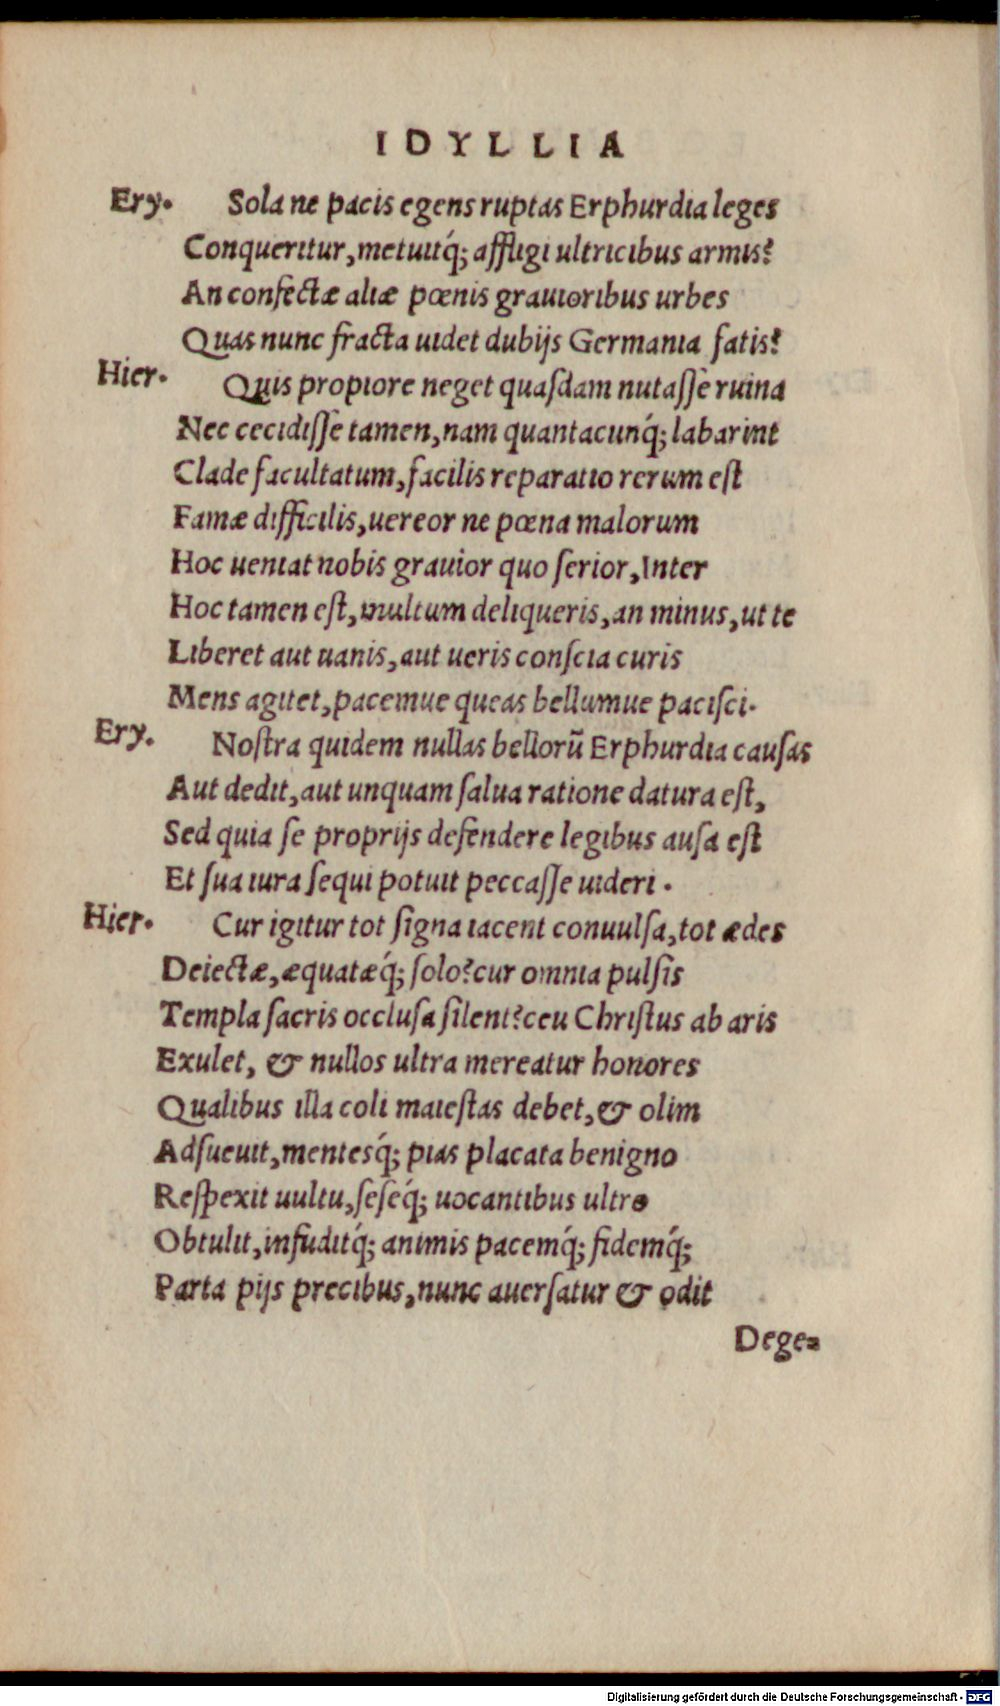 IDYLLIA
Ery. Sola ne pacis egens ruptas Erphurdia leges
Conqueritur, metuitq́; affligi ultricibus armis?
An confectæ aliæ pœnis grauioribus urbes
Quas nunc fracta uidet dubijs Germania fatis?
Hier. Quis propiore neget quasdam nutasse ruina
Nec cecidisse tamen, nam quantacunq́; labarint
Clade facultatum, facilis reparatio rerum est
Famæ difficilis, uereor ne pœna malorum
Hoc ueniat nobis grauior quo serior, Inter
Hoc tamen est, multum deliqueris, an minus, ut te
Liberet aut uanis, aut ueris conscia curis
Mens agitet, pacemue queas bellumue pacisci.
Ery. Nostra quidem nullas bellorū Erphurdia causas
Aut dedit, aut unquam salua ratione datura est,
Sed quia se proprijs defendere legibus ausa est
Et sua iura sequi potuit peccasse uideri.
Hier. Cur igitur tot signa iacent conuulsa, tot ædes
Deiectæ, æquatæq́; solo? cur omnia pulsis
Templa sacris occlusa silent? ceu Christus ab aris
Exulet, & nullos ultra mereatur honores
Qualibus illa coli maiestas debet, & olim
Adsueuit, mentesq́; pias placata benigno
Respexit uultu, seseq́; uocantibus ultro
Obtulit, infuditq́; animis pacemq́; fidemq́;
Parta pijs precibus, nunc auersatur & odit
Dege-
Digitalisierung gefördert durch die Deutsche Forschungsgemeinschaft - DFG